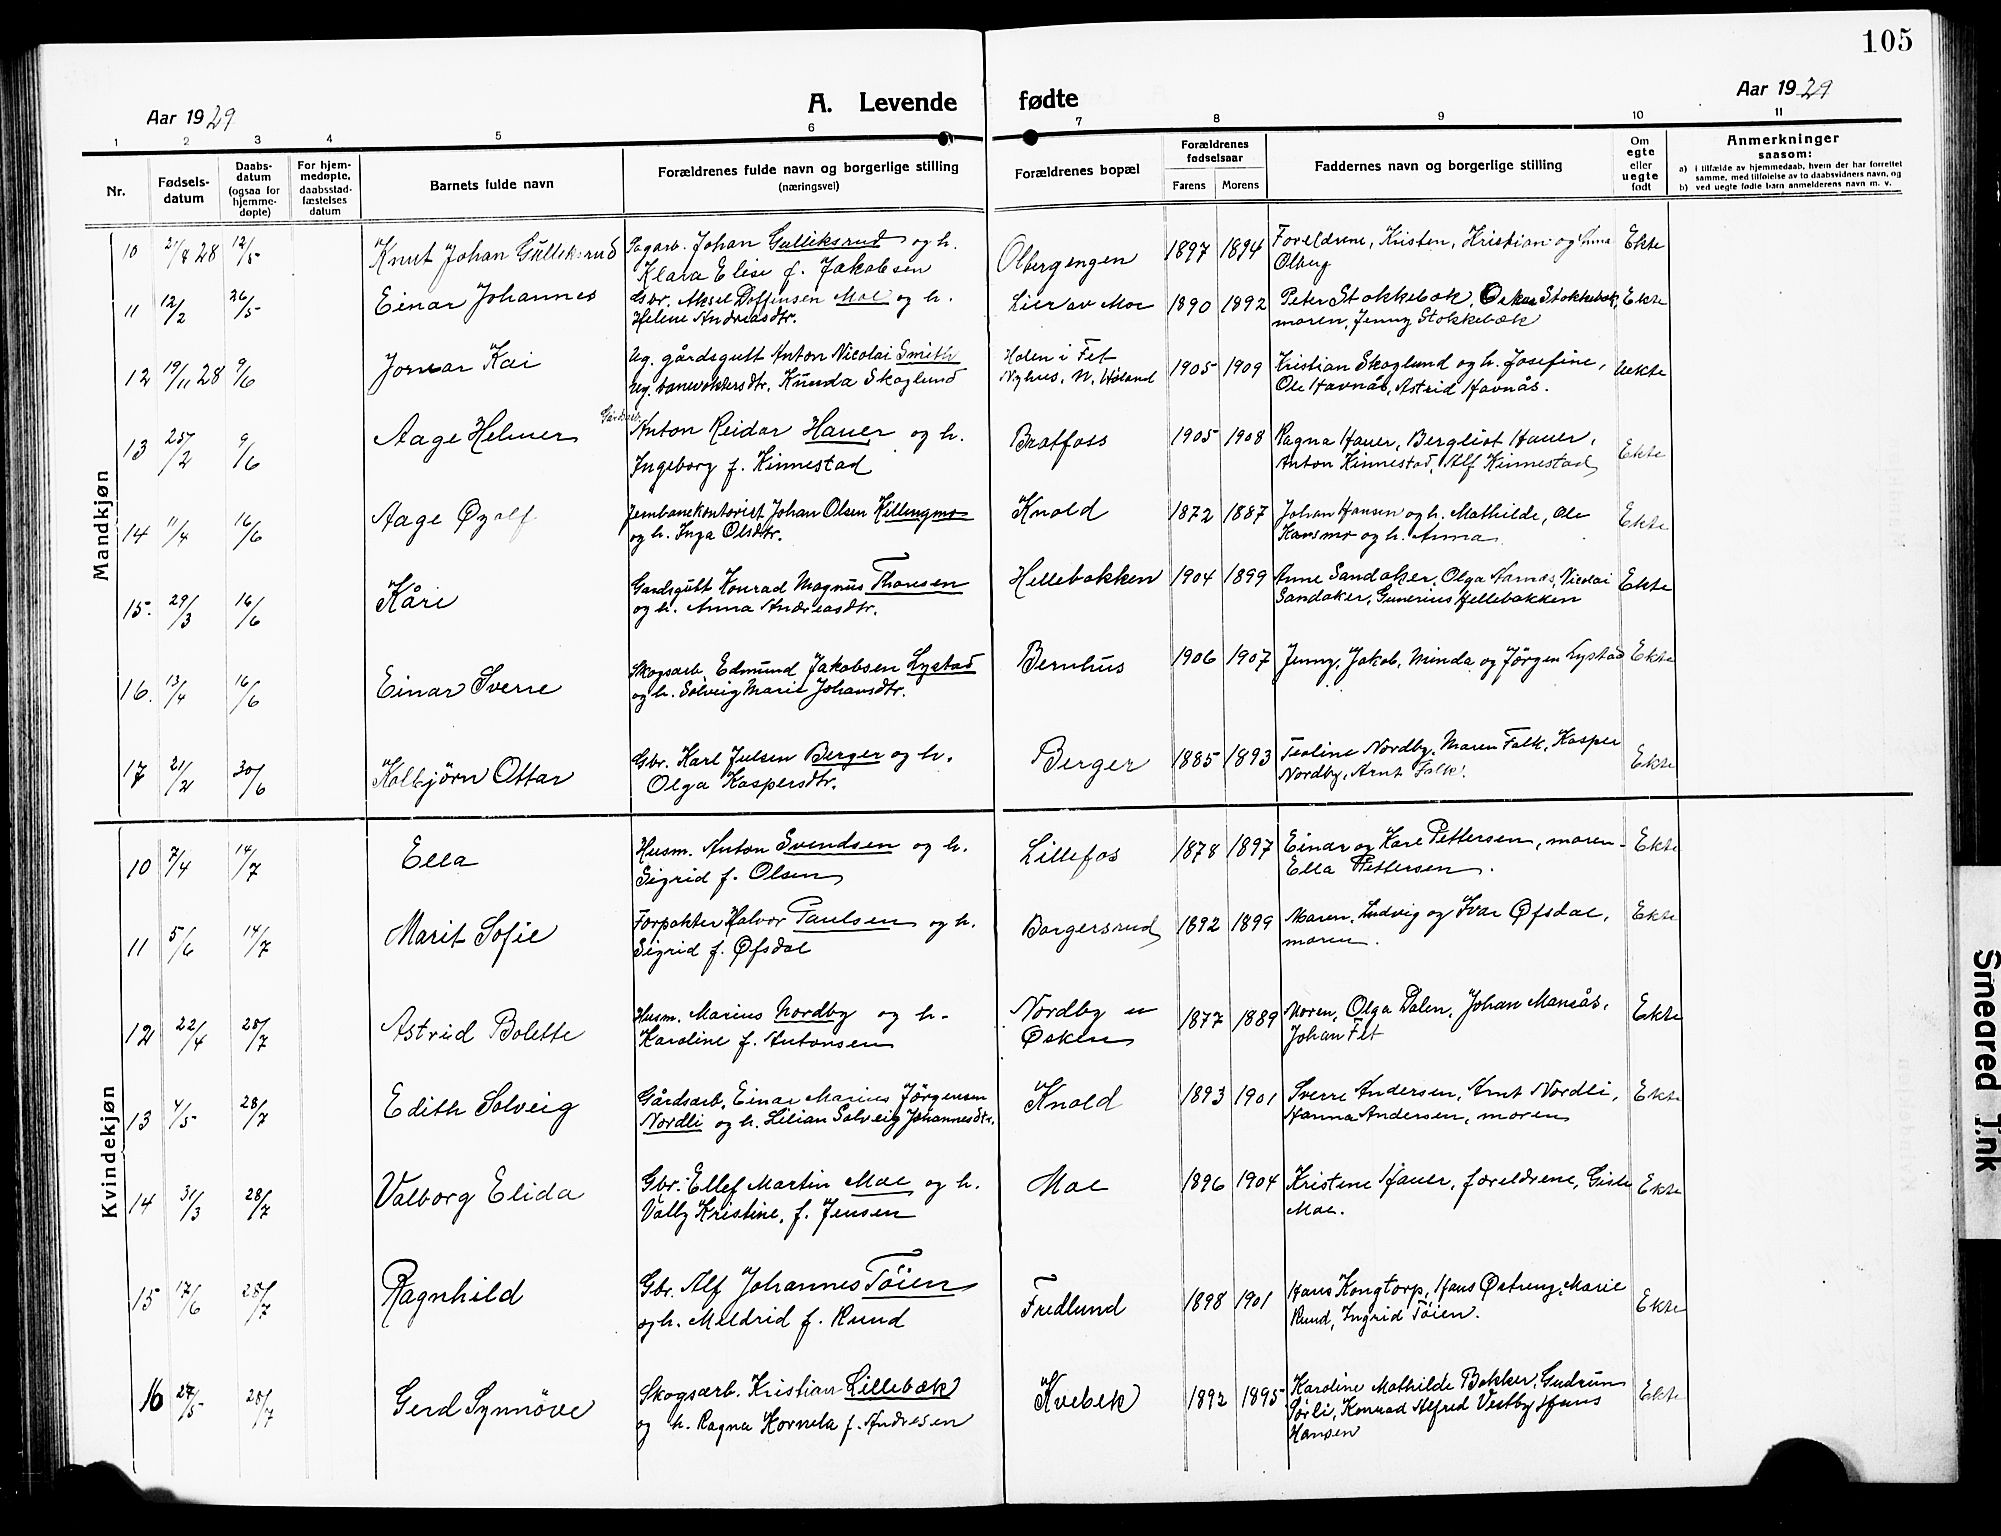 105
Aar 1929
A. Levende fødte
Aar 1929
1 2 3 4 5 6 7 8 9 10 11
Nr.
Fødsels-
datum
Daabs-
datum
(ogsaa for
hjemme-
døpte)
For hjem-
medøpte,
daabsstad-
fæstelses
datum
Barnets fulde navn
Forældrenes fulde navn og borgerlige stilling
(næringsvei)
Forældrenes bopæl
Forældrenes
fødselsaar
Farens Morens
Faddernes navn og borgerlige stilling
Om
egte
eller
uegte
født
Anmerkninger
saasom:
a) i tilfælde av hjemmedaab, hvem der har forrettet
samme, med tilføielse av to daabsvidners navn, og
b) ved uegte fødte barn anmelderens navn m. v.
Mandkjøn
10 21/8 28 12/5 Knut Johan Gulliksrud Sagarb. Johan Gulliksrud og h. Olbergengen 1897 1894 Foreldrene, Kristen, Kristian og Anna Ekte
Klara Elise f. Jakobsen Olberg
11 12/2 26/5 Einar Johannes Gbr. Aksel Doffensen Moe og h. Lier av Moe 1890 1892 Peter Stokkebæk, Oskar Stokkebæk, Ekte
Helene Andreasdtr. moren, Jenny Stokkebæk
12 19/11 28 9/6 Jornar Kai Ug. gårdsgutt Anton Nicolai Smith Holen i Fet 1905 1909 Kristian Skoglund og h. Josefine, Uekte
Ug. banevoktersdtr. Kunda Skoglund Nyhus, N. Høland Ole Havnås, Astrid Havnås.
13 25/2 9/6 Aage Helmer Gårdsarb. Anton Reidar Hauer og h. Bratfoss 1905 1908 Ragna Hauer, Bergliot Hauer, Ekte
Ingeborg f. Kinnestad Anton Kinnestad, Alf Kinnestad
14 11/4 16/6 Aage Øyolf Jernbanekontorist Johan Olsen Killingmo Knold 1872 1887 Johan Hansen og h. Mathilde, Ole Ekte
og h. Inga Olsdtr. Hansmo og h. Anna
15. 29/3 16/6 Kåre Gårdsgutt Konrad Magnus Thoresen Hellebakken 1904 1899 Anne Sandaker, Olga Aarnes, Nicolai Ekte
og h. Anna Andreasdtr. Sandaker, Gunerius Hellebakken
16. 13/4 16/6 Einar Sverre Skogsarb. Edmund Jakobsen Lystad Bernhus 1906 1907 Jenny, Jakob, Minda og Jørgen Lystad Ekte
og h. Solveig Marie Johansdtr.
17 21/2 30/6 Kolbjørn Ottar Gbr. Karl Julsen Berger og h. Berger 1885 1893 Teoline Nordby, Maren Falk, Kasper Ekte
Olga Kaspersdtr. Nordby, Arnt Falk.
Kvindekjøn
10 7/4 14/7 Ella Husm. Anton Svendsen og h. Lillefos 1878 1897 Einar og Kare Pettersen, moren Ekte
Sigrid f. Olsen Ella Pettersen.
11 5/6 14/7 Marit Sofie Forpakter Halvor Paulsen og h. Borgersrud 1892 1899 Maren, Ludvig og Ivar Øfsdal, Ekte
Sigrid f. Øfsdal moren.
12 22/4 28/7 Astrid Bolette Husm. Marius Nordby og h. Nordby u 1877 1889 Moren, Olga Dalen, Johan Mansås, Ekte
Karoline f. Antonsen Osken Johan Fet
13 4/5 28/7 Edith Solveig Gårdsarb. Einar Marius Jörgensen Knold 1893 1901 Sverre Andersen, Arnt Nordli, Ekte
Nordli og h. Lilian Solveig Johannesdtr. Hanna Andersen, moren
14 31/3 28/7 Valborg Elida Gbr. Ellef Martin Moe og h. Moe 1896 1904 Kristene Hauer, foreldrene, Gisle Ekte
Vally Kristine, f. Jensen Moe.
15 17/6 28/7 Ragnhild Gbr. Alf Johannes Töien Fredlund 1898 1901 Hans Kongtorp, Hans Østreng, Marie Ekte
og h. Meldrid f. Rund Rund, Ingrid Töien.
16 27/5 28/7 Gerd Synnöve Skogsarb. Kristian Lillebæk Kvebek 1892 1895 Karoline Mathilde Bakker, Gudrun Ekte
og h. Ragna Kornela f. Andresen Sørli, Konrad Alfred Vestby, Hans
Hansen
Smeared Ink